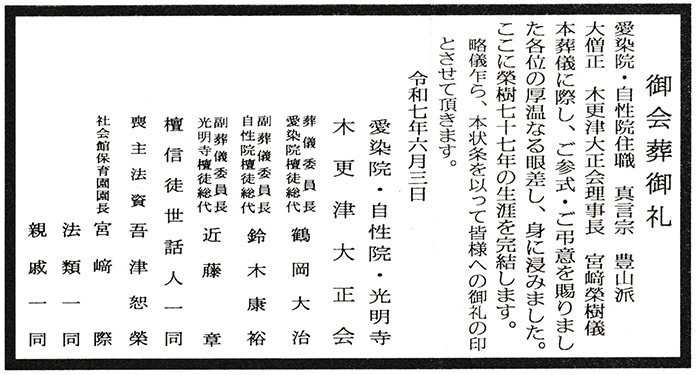 御会葬御礼
愛染院・自性院住職　真言宗　豊山派
大僧正　木更津大正会理事長　宮﨑榮樹儀
本葬儀に際し、ご参式・ご弔意を賜りまし
た各位の厚温なる眼差し、身に浸みました。
ここに榮樹七十七年の生涯を完結します。
略儀乍ら、本状条を以って皆様への御礼の印
とさせて頂きます。
令和七年六月三日
愛染院・自性院・光明寺
木更津大正会
葬儀委員長
愛染院檀徒総代　鶴岡大治
副葬儀委員長
自性院檀徒総代　鈴木康裕
副葬儀委員長
光明寺檀徒総代　近藤　章
檀信徒世話人一同
喪主法資　吾津恕榮
社会館保育園園長　宮﨑　際
法類一同
親戚一同